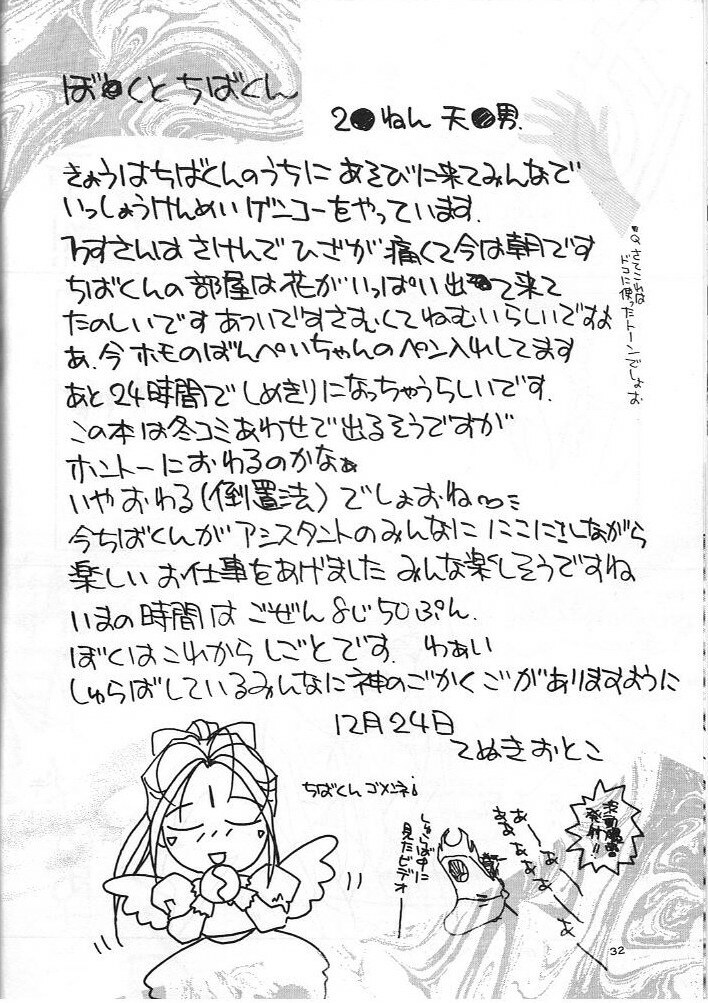 ぼ●くとちばくん
2●ねん 天●男.
きょうはちばくんのうちに あそびに来てみんなで
いっしょうけんめいゲンコーをやっています.
さんは さけんで ひざが 痛くて今は朝です
ちばくんの 部屋は花がいっぱい出て来て
たのしいです あついですさむくてねむいらしいですよ
あ、今 ホモのばんぺいちゃんのペン入れしてます
あと24時間でしめきりになっちゃうらしいです.
この本は冬コミあわせで出るそうですが
ホントーにおわるのかなぁ
いやおわる(倒置法)でしょおね〜
今ちばくんがアシスタントのみんなに にこにこしながら
楽しい お仕事をあげました みんな楽しそうですね
いまの時間は ごぜん 8じ50ぷん.
ぼくはこれからしごとです. わぁい
しゅらばしているみんなに神のごかくごがありますように
12月24日
てぬきおとこ
Q さてこれは
ドコに使ったトーンでしょお
ちばくんゴメンネ!
しゅらば中に
見たビデオ
あーあぁぁぁぁ
発射!!
32